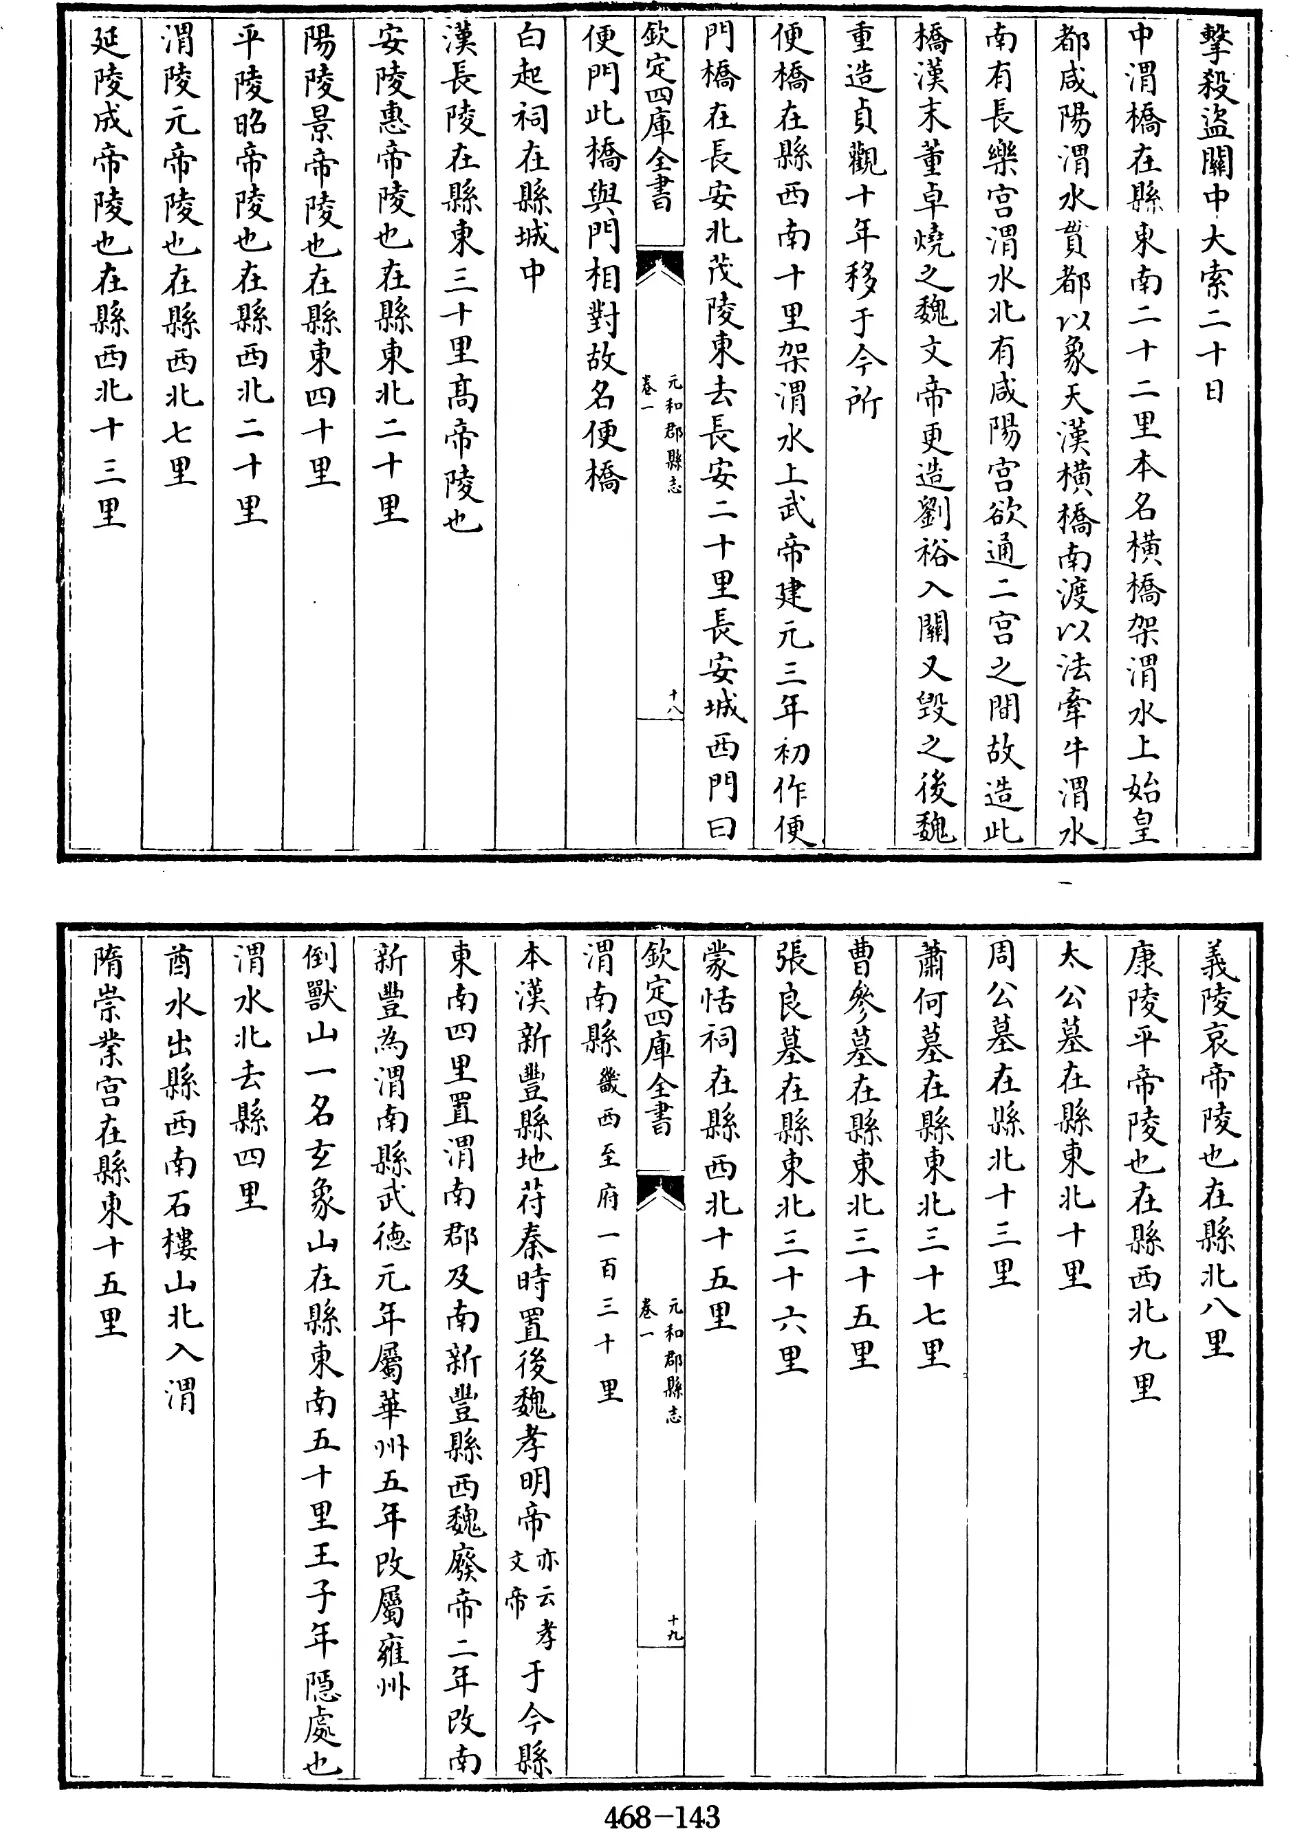 擊殺盜關中大索二十日
中渭橋在縣東南二十二里本名橫橋架渭水上始皇
都咸陽渭水貫都以象天漢橫橋南渡以法牽牛渭水
南有長樂宮渭水北有咸陽宮欲通二宮之間故造此
橋漢末董卓燒之魏文帝更造劉裕入關又毀之後魏
重造貞觀十年移于今所
便橋在縣西南十里架渭水上武帝建元三年初作便
門橋在長安北茂陵東去長安二十里長安城西門曰
欽定四庫全書
元和郡縣志
卷一
十八
便門此橋與門相對故名便橋
白起祠在縣城中
漢長陵在縣東三十里高帝陵也
安陵惠帝陵也在縣東北二十里
陽陵景帝陵也在縣東四十里
平陵昭帝陵也在縣西北二十里
渭陵元帝陵也在縣西北七里
延陵成帝陵也在縣西北十三里
義陵哀帝陵也在縣北八里
康陵平帝陵也在縣西北九里
太公墓在縣東北十里
周公墓在縣北十三里
蕭何墓在縣東北三十七里
曹參墓在縣東北三十五里
張良墓在縣東北三十六里
蒙恬祠在縣西北十五里
欽定四庫全書
元和郡縣志
卷一
十九
渭南縣畿西至府一百三十里
本漢新豐縣地苻秦時置後魏孝明帝亦云孝文帝于今縣
東南四里置渭南郡及南新豐縣西魏廢帝二年改南
新豐為渭南縣武德元年屬華州五年改屬雍州
倒獸山一名玄象山在縣東南五十里王子年隱處也
渭水北去縣四里
酋水出縣西南石樓山北入渭
隋崇業宮在縣東十五里
468-143